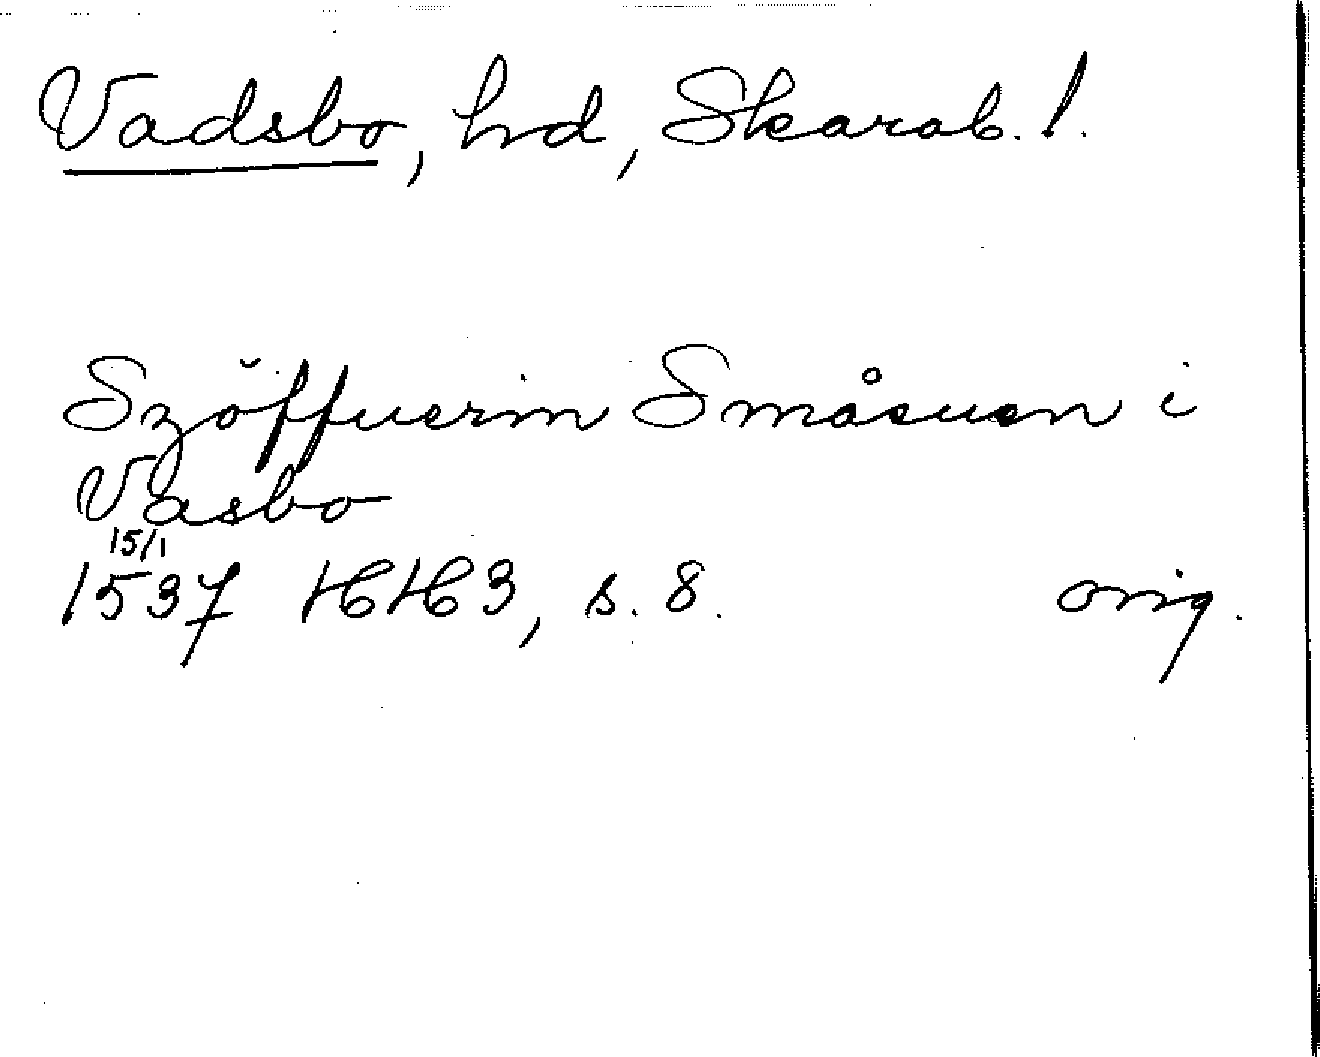 Vadsbo, hd, Skarab. l.
Szöffuerin Småsuen i
Vasbo
15/1
1537 HH 3, s. 8. orig.